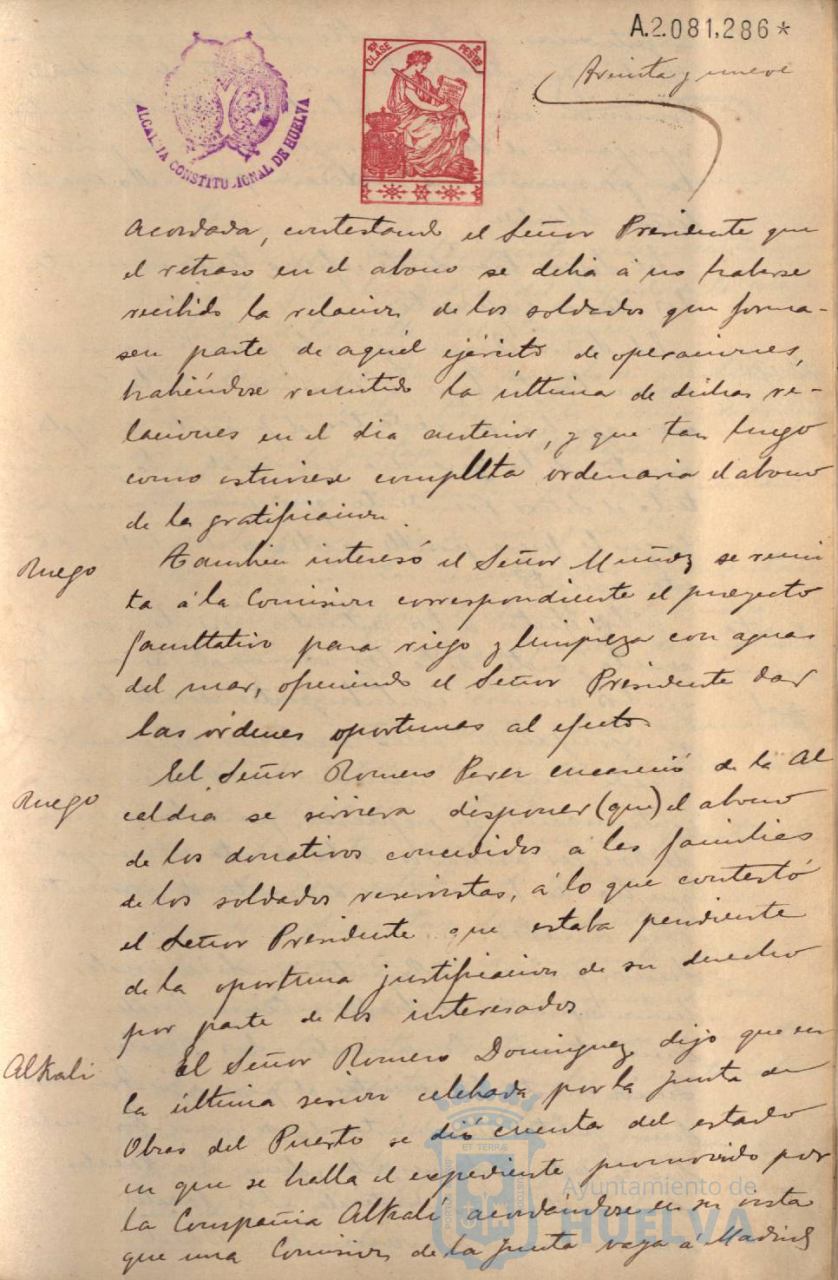 A.2.081,286*
Treinta y nueve
11ª CLASE
PESETAS
ALCALDIA CONSTITUCIONAL DE HUELVA
acordada, contestando el Señor Presidente que
el retraso en el abono se debia á no haberse
recibido la relacion de los soldados que forma-
sen parte de aquél ejército de operaciones,
habiéndose remitido la última de dichas re-
laciones en el dia anterior, y que tan luego
como estuviese completa ordenaria el abono
de la gratificacion.
Ruego
Tambien interesó el Señor Muñoz se remi
ta á la Comision correspondiente el proyecto
facultativo para riego y limpieza con aguas
del mar, ofreciendo el Señor Presidente dar
las órdenes oportunas al efecto.
Ruego
El Señor Romero Perez encareció de la Al
caldia se sirviera disponer (que) el abono
de los donativos concedidos á las familias
de los soldados reservistas, á lo que contestó
el Señor Presidente que estaba pendiente
de la oportuna justificacion de su derecho
por parte de los interesados.
Alkali
El Señor Romero Dominguez dijo que en
la última sesion celebada por la Junta de
Obras del Puerto se dió cuenta del estado
en que se halla el expediente promovido por
la Compañia Alkali acordándose en su vista
que una Comision de la Junta vaya á Madrid
Ayuntamiento de
HUELVA